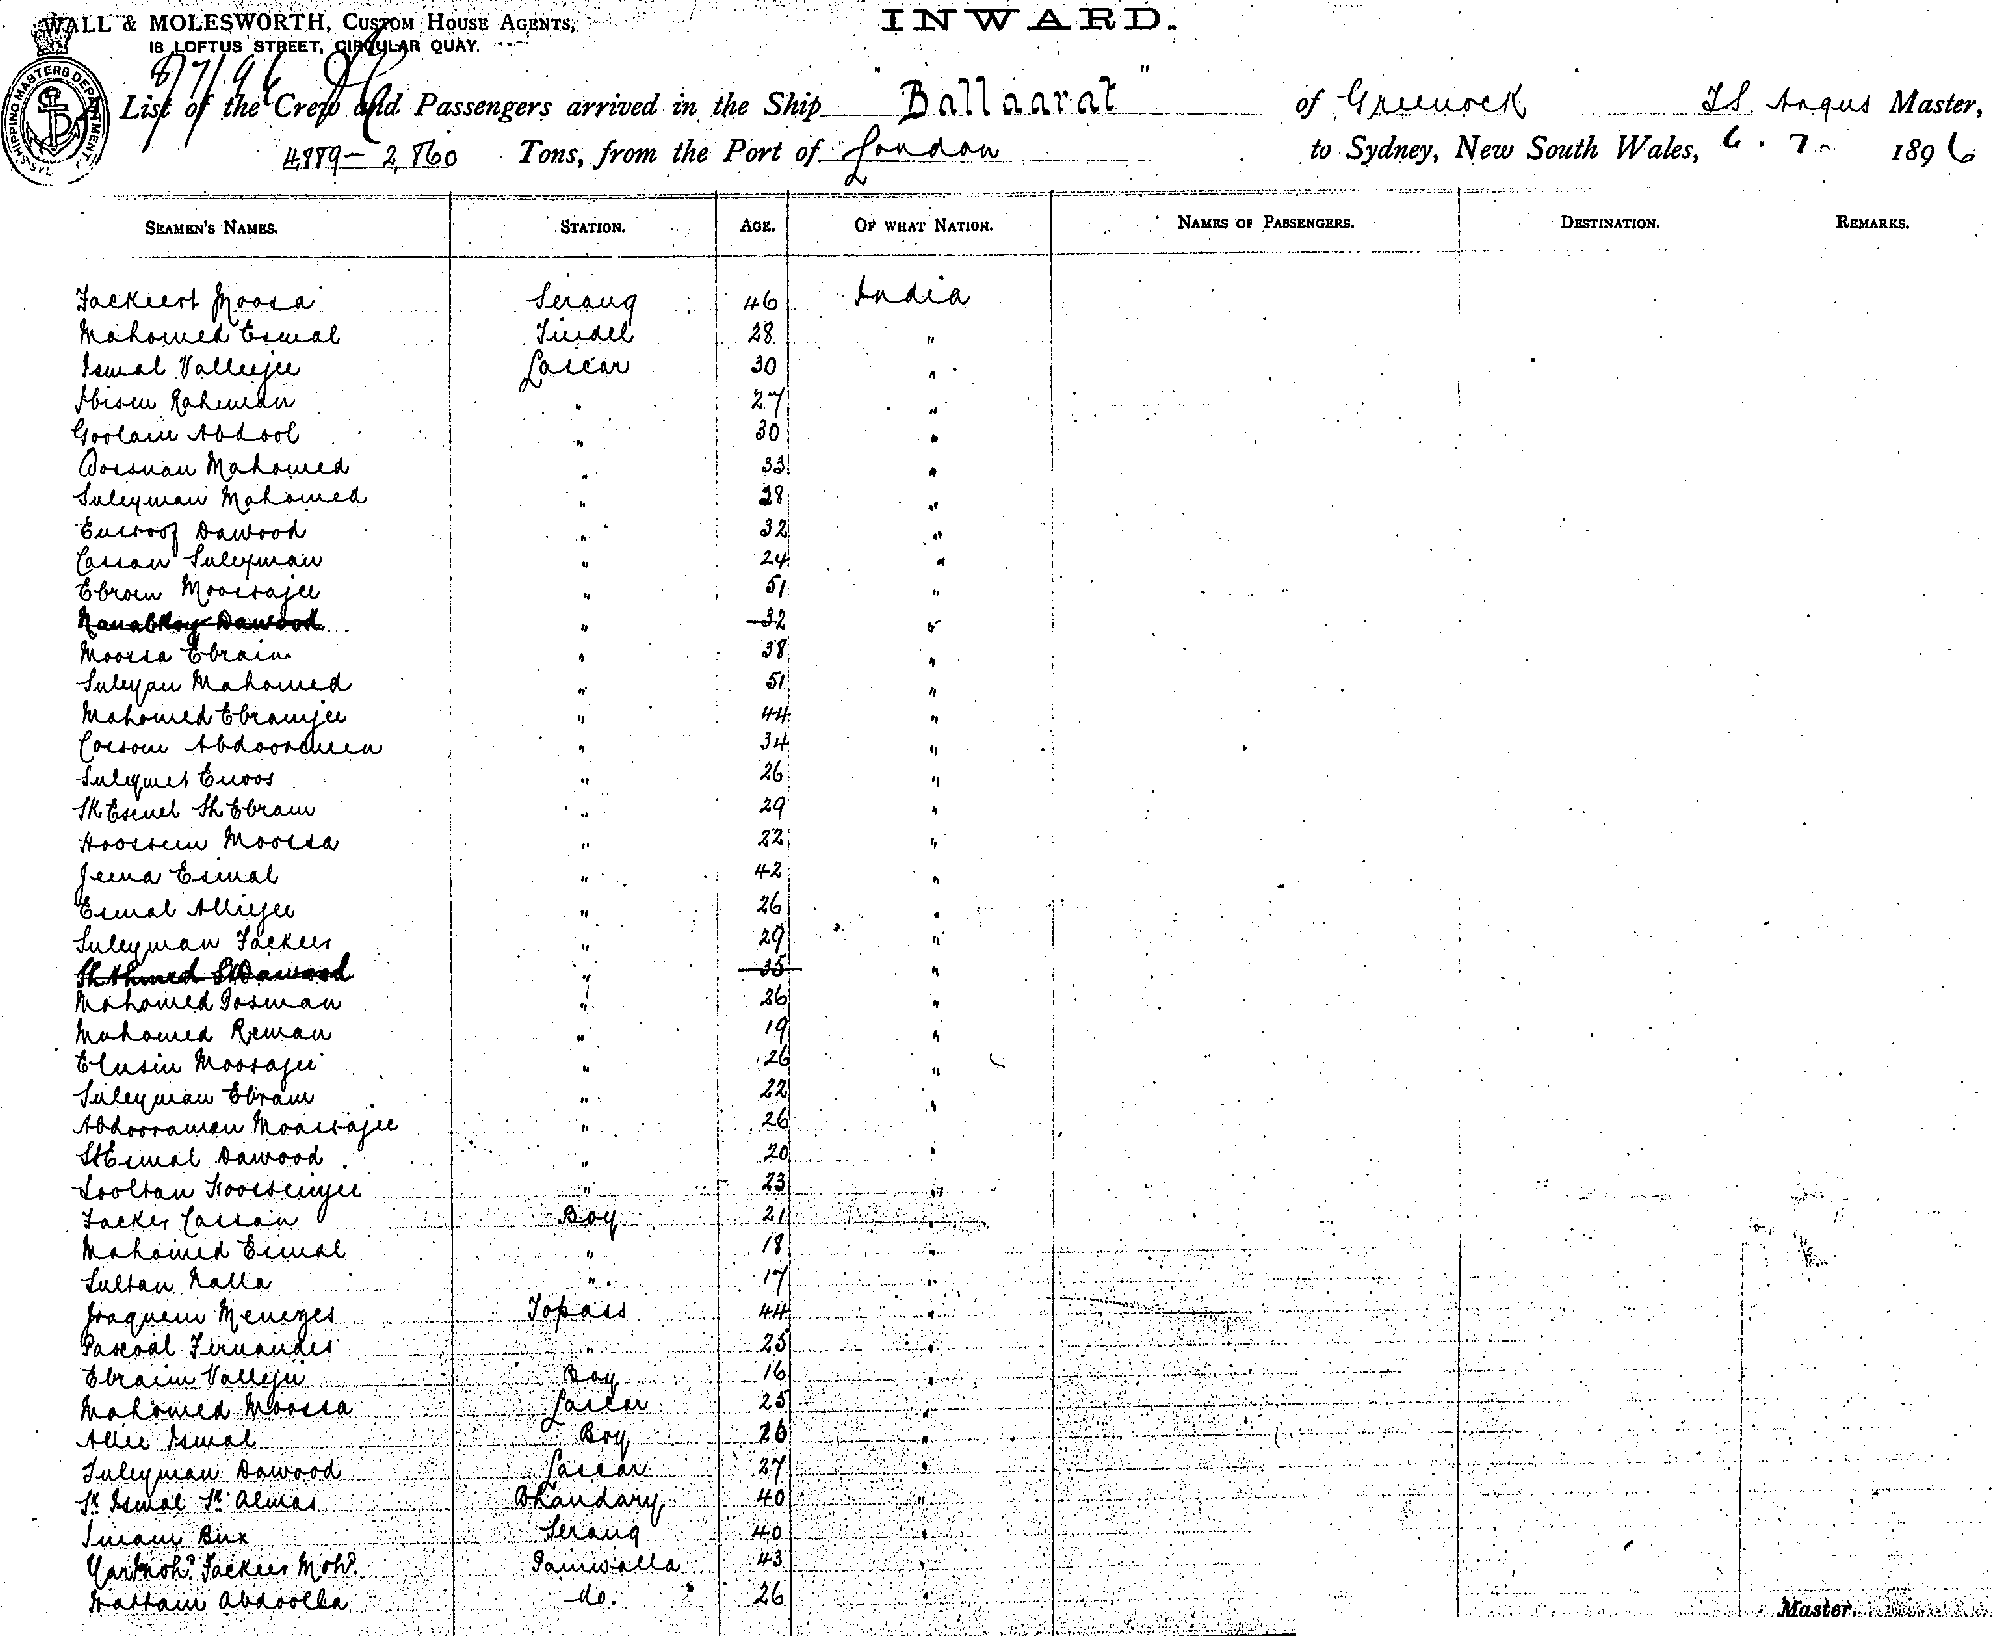 WALL & MOLESWORTH, CUSTOM HOUSE AGENTS,
18 LOFTUS STREET, CIRCULAR QUAY.
INWARD.
SHIPPING MASTERS DEPARTMENT
8/7/96
List of the Crew and Passengers arrived in the Ship "Ballaarat" of Greenock Angus Master,
4889 - 2860 Tons, from the Port of London to Sydney, New South Wales, 6 . 7 - 1896
SEAMEN'S NAMES. STATION. AGE. OF WHAT NATION. NAMES OF PASSENGERS. DESTINATION. REMARKS.
Moosa Serang 46 India
Mahomed Esmal Tindel 28 "
Ismal Valleejee Lascar 30 "
Rahiman " 27 "
Goolam Abdool " 30 "
Mahomed " 33 "
Suleyman Mahomed " 28 "
Dawood " 32 "
Cassan Suleyman " 24 "
Moossajee " 51 "
Dawood " 32 "
Moossa Ebraim " 38 "
Mahomed " 51 "
Mahomed Ebramjee " 44 "
" 34 "
" 26 "
Sk Esmel Sk Ebram " 29 "
Hoossein Moossa " 22 "
Jeena Esmal " 42 "
Esmal Alliejee " 26 "
Suleyman " 29 "
Sk Ahmed Sk Dawood " 35 "
Mahomed Oosman " 26 "
Mahomed Reman " 19 "
Moosajee " 26 "
Suleyman Ebram " 22 "
Abdooraman Moossajee " 26 "
Sk Esmal Dawood " 20 "
Sooltan Hoosseinjee " 23 "
Cassan Boy 21 "
Mahomed Esmal " 18 "
Sultan Nalla " 17 "
Joaquim Menezes Topass 44 "
Pascoal Fernandes " 25 "
Ebraim Vallejee Boy 16 "
Mahomed Moossa Lascar 25 "
Allee Ismal Boy 26 "
Suleyman Dawood Lascar 27 "
Sk Ismal Sk Almas Bhandary 40 "
Imam Bux Serang 40 "
Moh? 43 "
Abdoolla do. 26 "
Master.